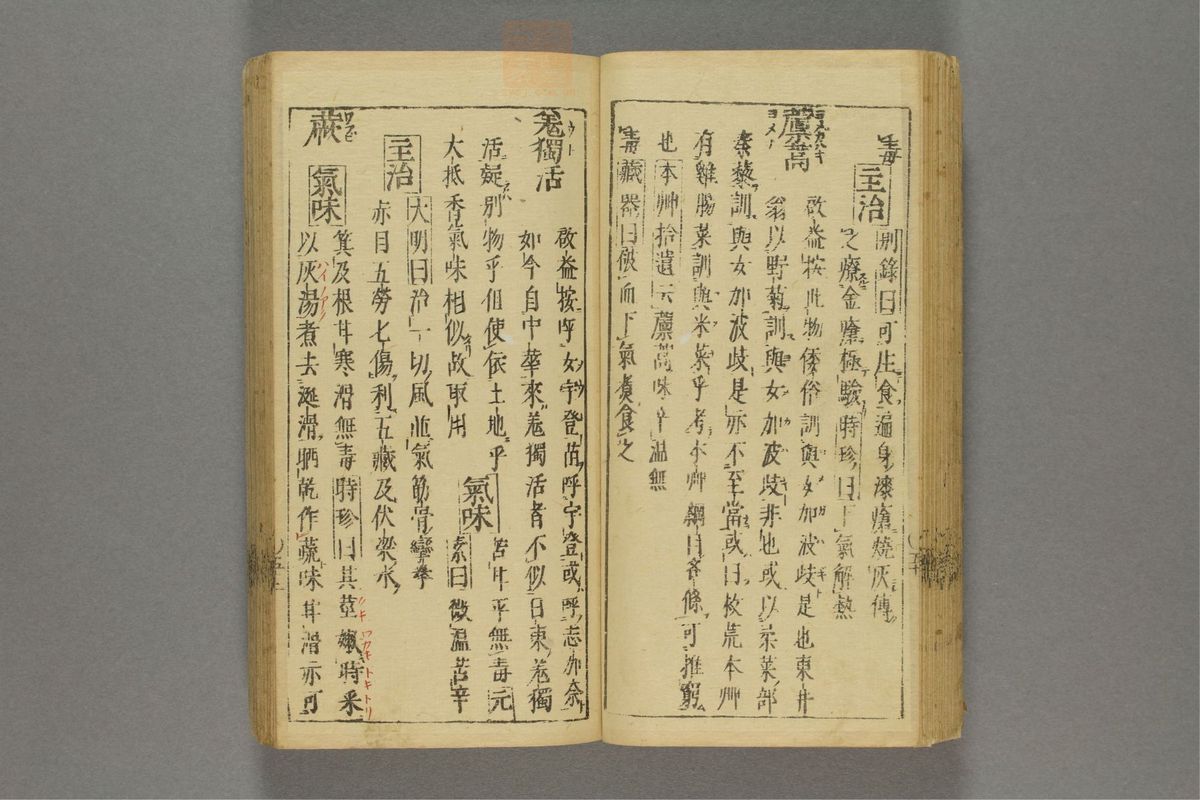 毒 主治 別錄曰可生食遍身漆瘡燒灰傅
之療金瘡極驗時珍曰下氣解熱
藘蒿 啟益按此物倭俗訓與女加波岐是也東井
翁以野菊訓與女加波岐非也或以柔菜部
訓與女加波岐是亦不至當或曰救荒本艸
有雞腸菜訓與米菜乎考本艸綱目各條可推窮
也本艸拾遺云藘蒿味辛溫無
毒藏器曰破血下氣煮食之
獨活 啟益按呼女宇登苗呼宇登或呼志加奈
如今自中華來羗獨活者不似日東羗獨
活疑別物乎但使依土地乎
大抵香氣味相似故取用 氣味 苦甘平無毒元
素曰微溫苦辛
主治 大明曰治一切風並氣筋骨攣拳
赤目五勞七傷利五藏及伏梁水
蕨 氣味 箕及根甘寒滑無毒時珍曰其莖嫩時采
以灰湯煮去涎滑晒乾作蔬味甘滑亦可